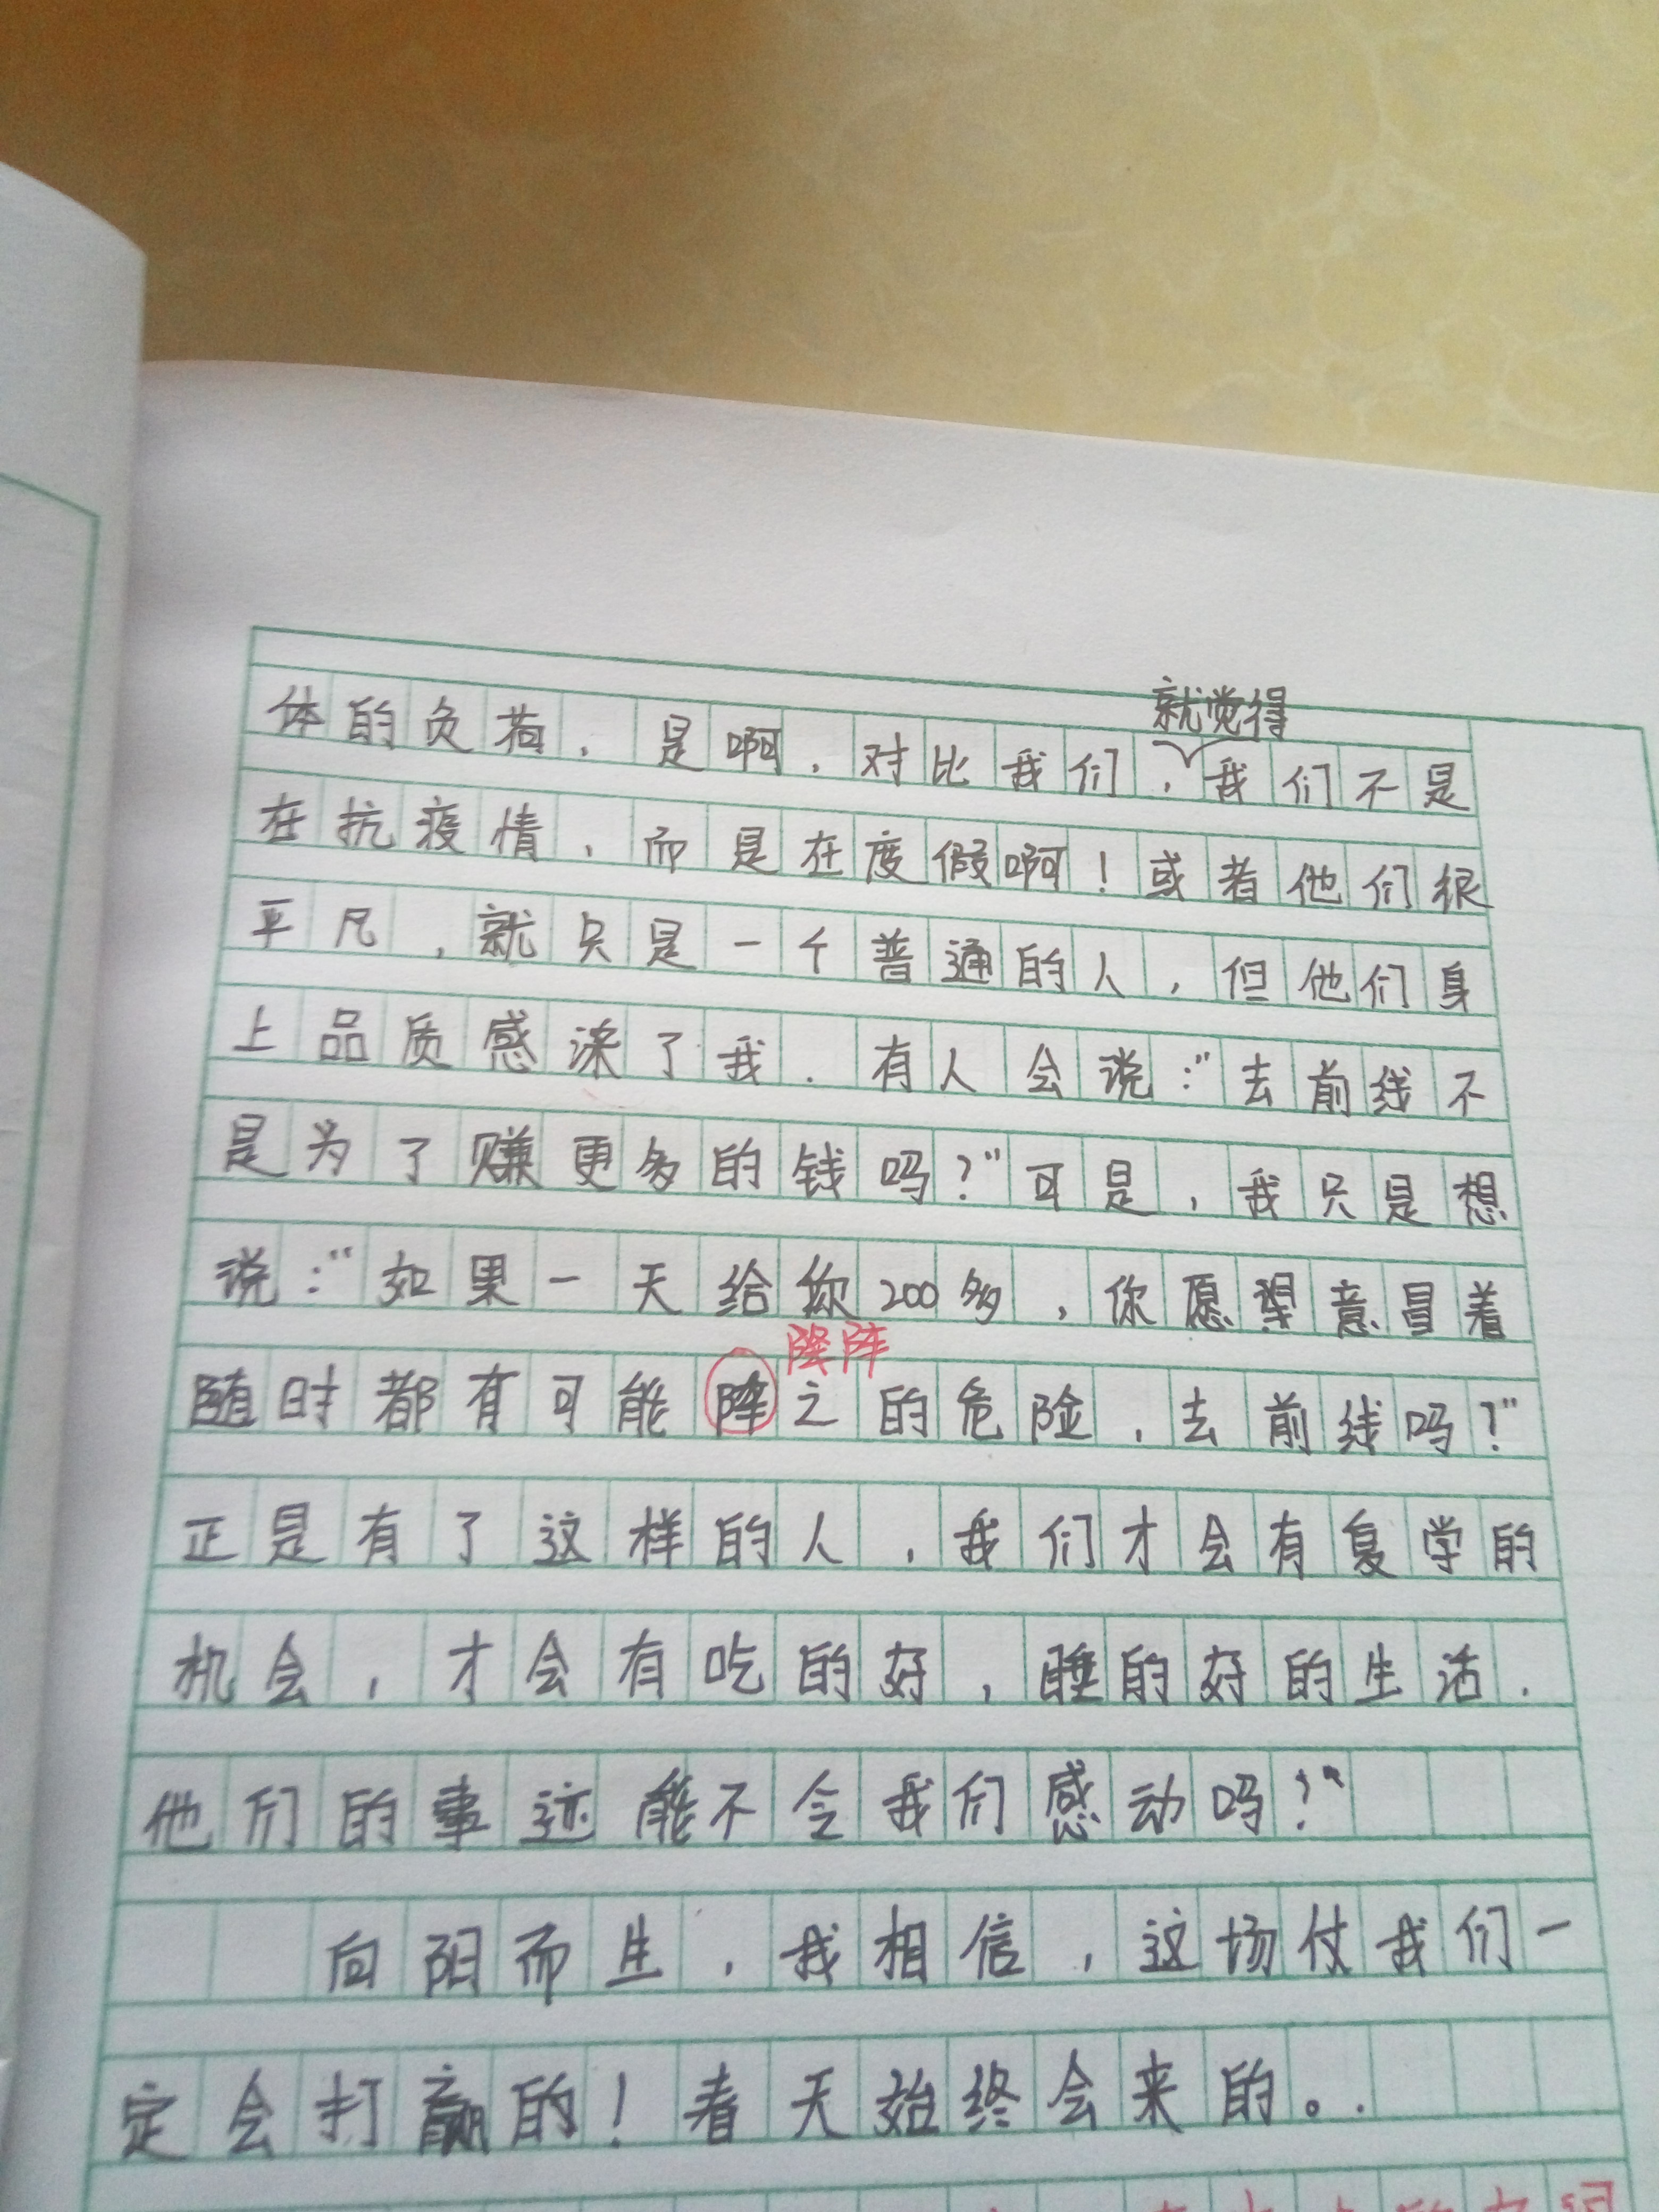 就觉得
体的负荷．是啊，对比我们，我们不是
在抗疫情，而是在度假啊！或者他们很
平凡，就只是一个普通的人，但他们身
上品质感染了我．有人会说：“去前线不
是为了赚更多的钱吗？”可是，我只是想
说：“如果一天给你200多，你愿望意冒着
降阵
随时都有可能阵之的危险，去前线吗？”
正是有了这样的人，我们才会有复学的
机会，才会有吃的好，睡的好的生活．
他们的事迹能不令我们感动吗？”
向阳而生，我相信，这场仗我们一
定会打赢的！春天始终会来的。．